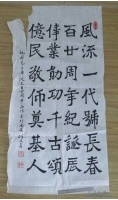 風流一代號長春
百廿周年紀誕辰
偉業勛功千古頌
億民敬仰奠基人